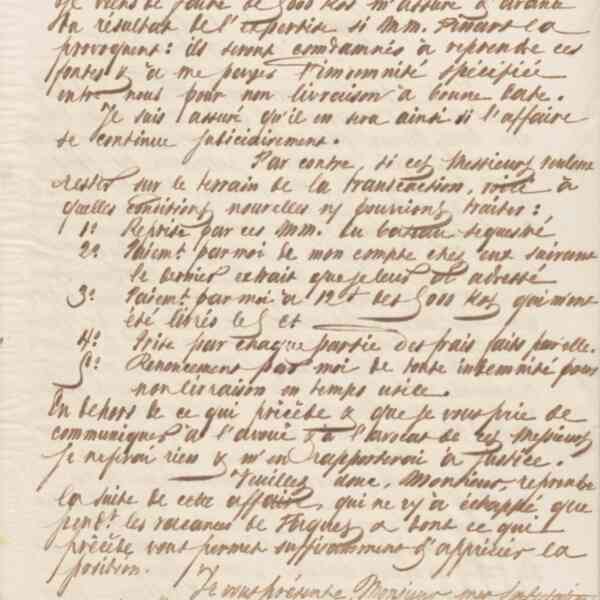 je viens de faire de 5000 Kos m'assure d'avance
du résultat de l'expertise si MM. Pinart la
provoquent : ils seront condamnés à reprendre ces
fontes & à me payer l'indemnité spécifiée
entre nous pour non livraison à bonne date.
Je suis assuré qu'il en sera ainsi si l'affaire
se continue judiciairement.
Par contre, si ces Messieurs veulent
rester sur le terrain de la transaction, voilà à
quelles conditions nouvelles ns pourrions traiter :
1º Reprise par ces MM. du bateau séquestré
2º Paiemt par moi de mon compte chez eux suivant
le dernier extrait que je leur ai adressé
3º Paiemt par moi à 12 f des 5000 Kos qui m'ont
été livrés le 5 ct
4º Prise par chaque partie des frais faits par elle.
5º Renoncement par moi de toute indemnité pour
non livraison en temps utile.
En dehors de ce qui précède & que je vous prie de
communiquer à l'avoué & à l'avocat de ces Messieurs
je ne ferai rien & m'en rapporterai à justice.
Veuillez donc, Monsieur, reprendre
la suite de cette affaire, qui ne m'a échappé que
pendt les vacances de Pâques & dont ce qui
précède vous permet suffisamment d'apprécier la
position.
Je vous présente, Monsieur, mes